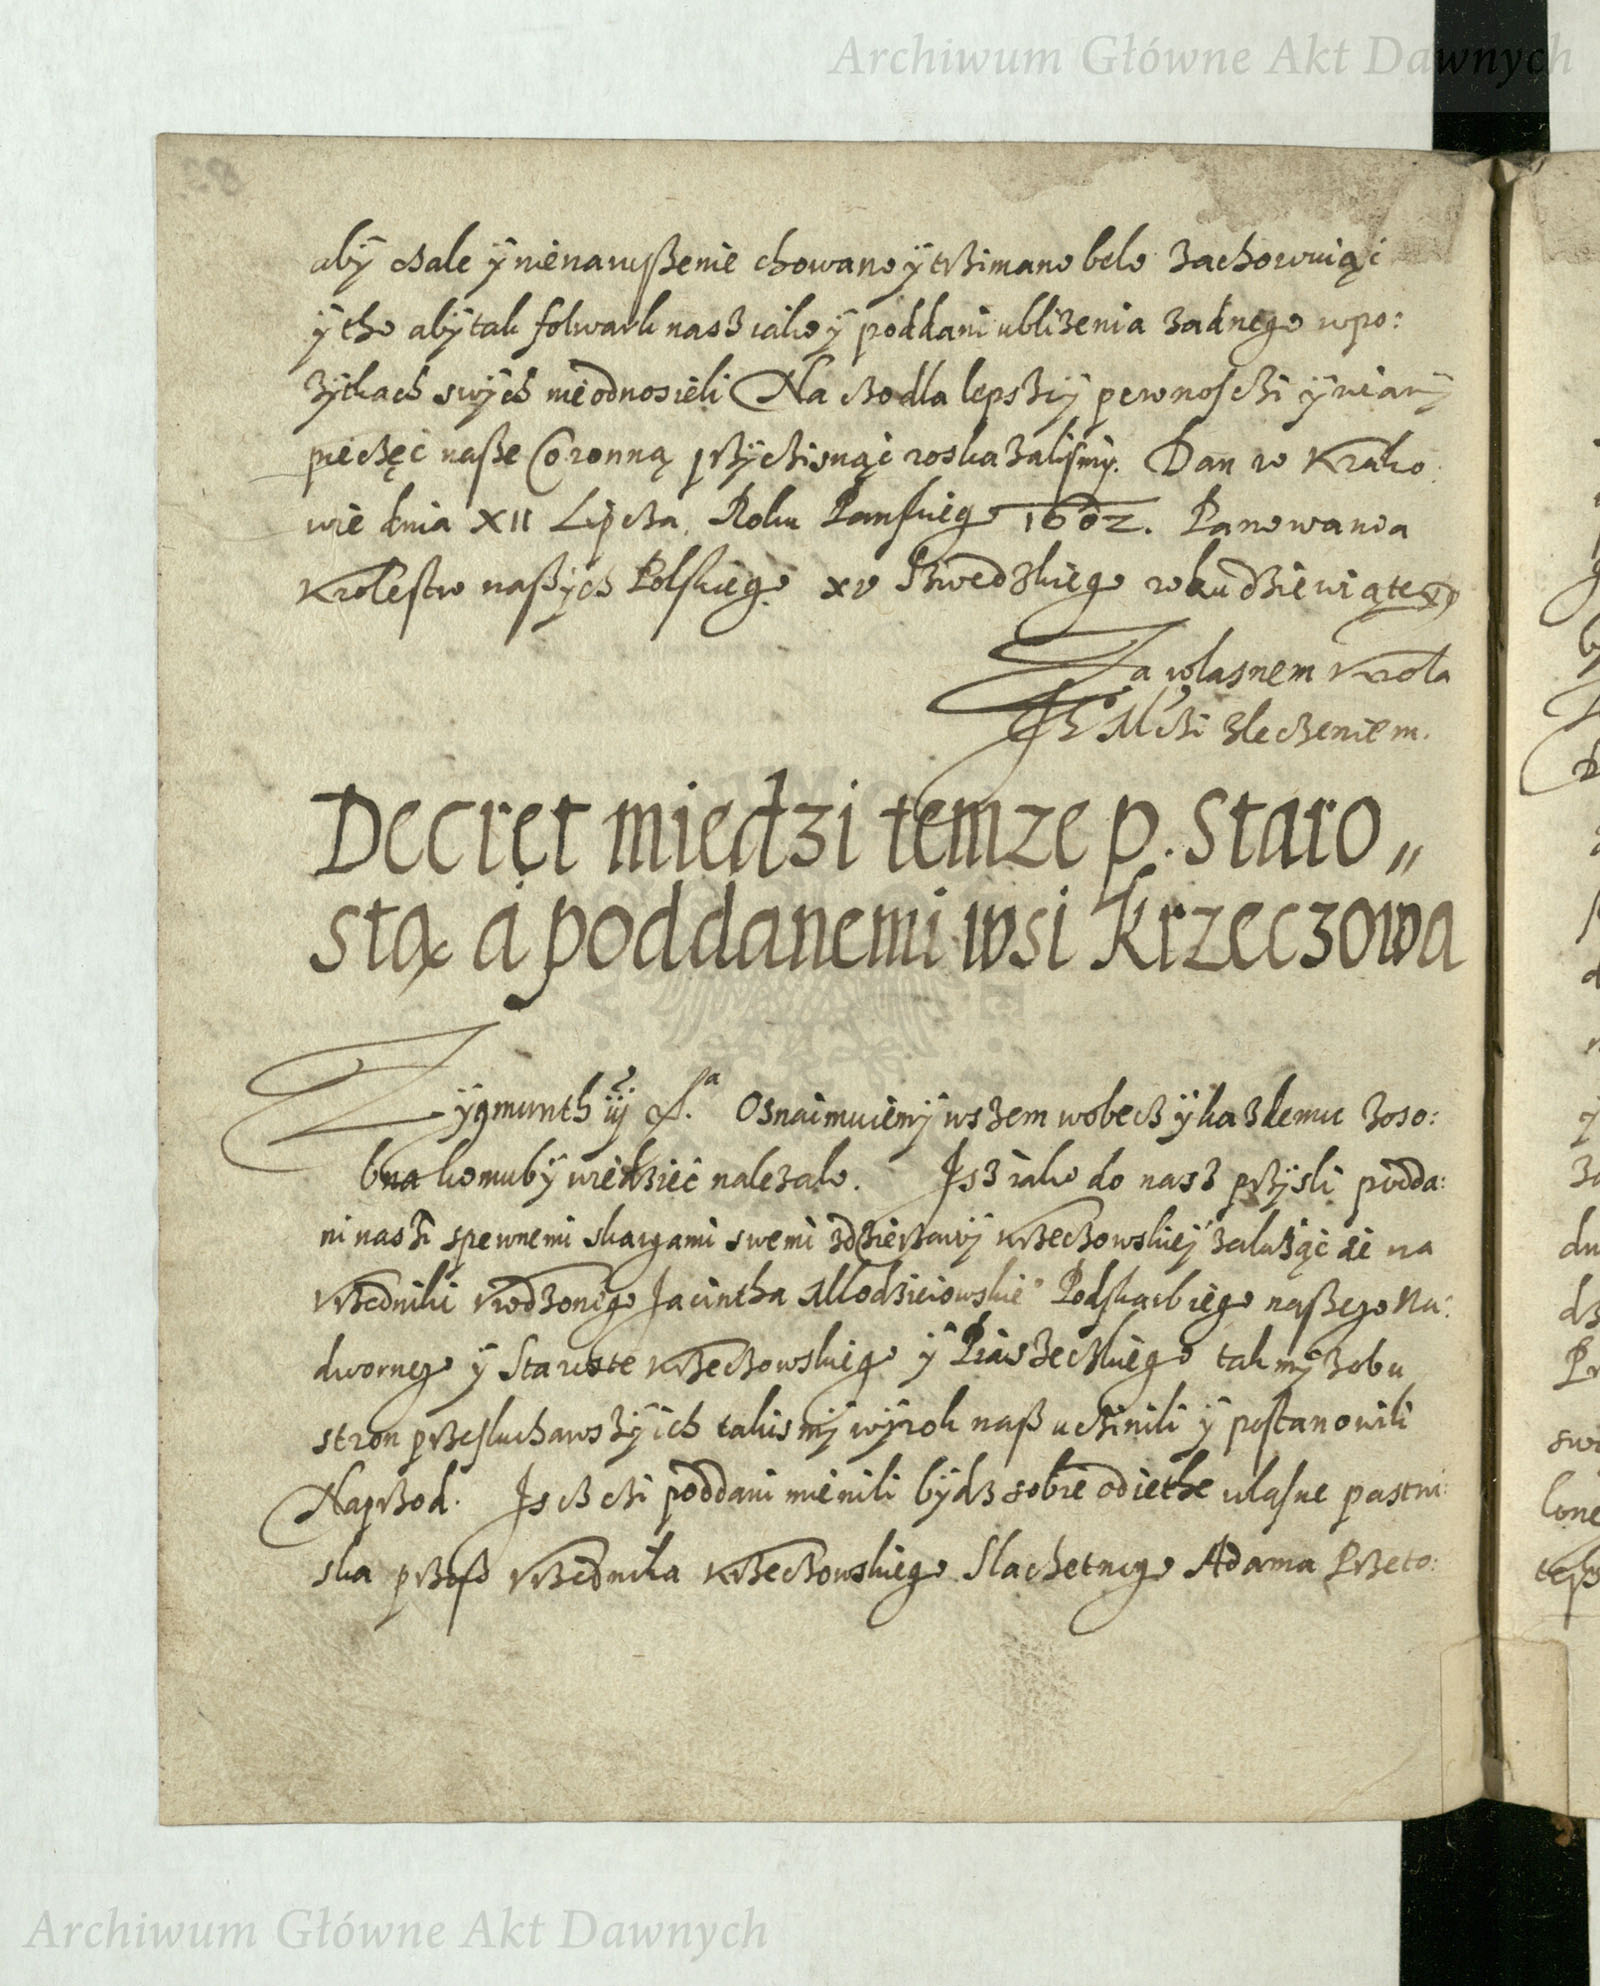 Archiwum Główne Akt Dawnych
abÿ czale ÿ nienarussenie chowano ÿ trzimano belo zachowuiąć
ÿ tho abÿ tak folwark nasz iako ÿ poddani ubliżenia zadnego w po:
zÿtkach swÿch nieodnosieli Na czo dla lepszÿ pewnosczi ÿ wiarÿ
pieczęć nasse Coronną przÿczisnąć roskazalismy. Dan w Krako
wie dnia XII Lipcza Roku Panskiego 1602. Panowania
Krolestw nassÿch Polskiego XV Szwedzkiego roku dziewiątego
Za wlasnem Krola
Je° Mczi zleczeniem.
Decret miedzi temze p. Staro„
stą a poddanemi wsi Krzeczowa
Zÿgmunth iij etc.a Osnaimuiemÿ wszem wobecz ÿ kazdemu zoso:
bna komubÿ wiedzieć nalezalo. Isz iako do nasz przÿsli podda:
ni naszi s pewnemi skargami swemi z dzierzawÿ Krzeczowskieÿ zaluiąć sie na
Vrzedniki Vrodzonego Jacintha Mlodzieiowskie° Podskarbiego nassego Na:
dwornego ÿ Staroste Krzeczowskiego ÿ Piaseczkiego tak mÿ z obu
stron przesluchawszÿ ich takismÿ wÿrok nass uczinili ÿ postanowili
Naprzod. Isz czi poddani mienili bÿdz sobie odiethe wlasne pastwi:
ska przess Vrzednika Krzeczowskiego Slachetnego Adama Przeto:
Archiwum Główne Akt Dawnych